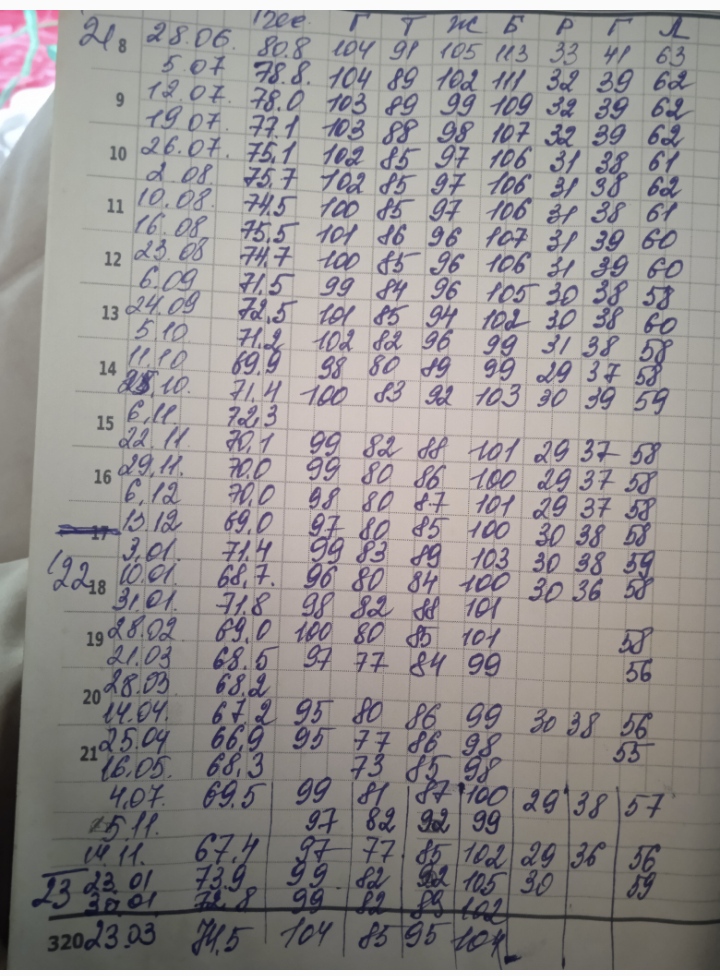 21 Вес. Г Т Ж Б Р Г Л
8 28.06. 80.8 104 91 105 113 33 41 63
5.07 78.8. 104 89 102 111 32 39 62
9 12.07. 78.0 103 89 99 109 32 39 62
19.07. 77.1 103 88 98 107 32 39 62
10 26.07. 75.1 102 85 97 106 31 38 61
2.08. 75.7 102 85 97 106 31 38 62
11 10.08. 74.5 100 85 97 106 31 38 61
16.08 75.5 101 86 96 107 31 39 60
12 23.08 74.7 100 85 96 106 31 39 60
6.09 71.5 99 84 96 105 30 38 58
13 24.09 72.5 101 85 94 102 30 38 60
5.10 71.2 102 82 96 99 31 38 58
14 11.10 69.9 98 80 89 99 29 37 58
25.10. 71.4 100 83 92 103 30 39 59
15 6.11 72,3
22.11. 70,1 99 82 88 101 29 37 58
16 29.11. 70.0 99 80 86 100 29 37 58
6.12 70,0 98 80 87 101 29 37 58
17 13.12 69,0 97 80 85 100 30 38 58
3.01. 71.4 99 83 89 103 30 38 59
'22 18 10.01. 68,7. 96 80 84 100 30 36 58
31.01. 71.8 98 82 88 101
19 28.02 69.0 100 80 85 101 58
21.03 68.5 97 77 84 99 56
20 28.03 68.2
14.04. 67,2 95 80 86 99 30 38 56
21 25.04 66,9 95 77 86 98 55
16.05. 68,3 73 85 98
4.07. 69.5 99 81 87 100 29 38 57
5.11. 97 82 92 99
14.11. 67.4 97 77 85 102 29 36 56
23 23.01 73.9 99 82 92 105 30 59
30.01 72.8 99 82 89 102
320 23.03 74,5 104 85 95 104